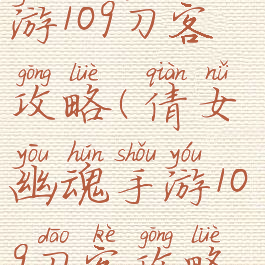 游109刀客
gōng lüè qiàn nǚ
攻略(倩女
yōu hún shǒu yóu
幽魂手游10
dāo kè gōng lüè
9刀客攻略